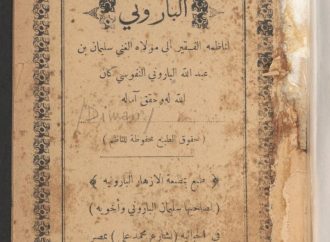 الباروني
لناظمه الفقير الى مولاه الغني سليمان بن
عبد الله الباروني النفوسي كان
الله له وحقق آماله
Diwan
( حقوق الطبع محفوظة للناظم )
﴿ طبع بمطبعة الازهار البارونية ﴾
( لصاحبها سليمان الباروني وأخويه )
في بشارع محمد علي ) بمصر